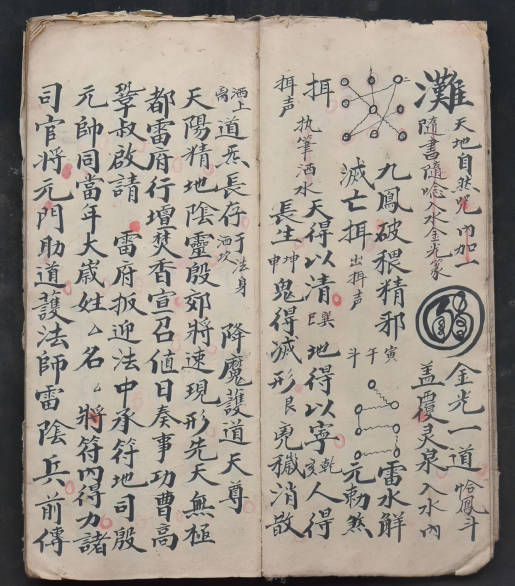 灘 天地自然咒 內加一
隨書隨唸入水金光篆
金光一道 恰鳳斗
盖覆灵泉入水內
九鳳破穢精邪
滅亡挕 出挕声
寅
午
斗
雷水解
元勅煞
挕 天得以清 巽巳 地得以寧 乾亥 人得
挕声 执筆洒水
長生 坤申 鬼得滅形 艮 凭穢消散
洒上
道炁長存 于法身 洒坎 降魔護道天尊
天陽精地陰靈殷郊將速現形先天無極
都雷府行壇焚香宣召值日奏事功曹高
鞏叔啟請 雷府扳迎法中承符地司殷
元帥同當年大嵗姓厶名厶將符內得力諸
司官將元門助道護法師雷陰兵前傳